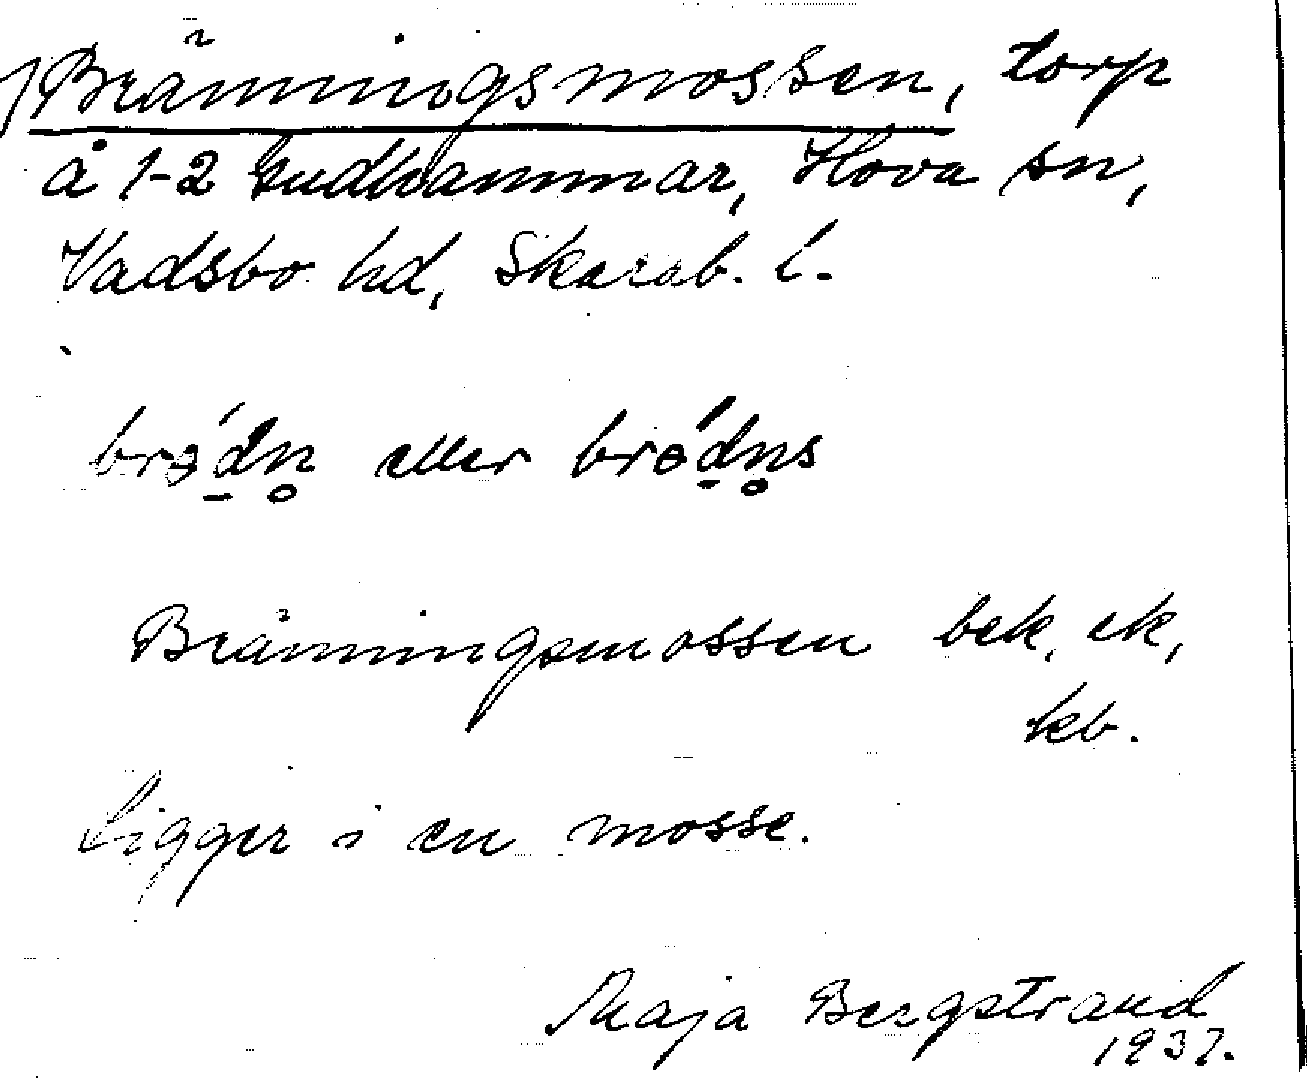 Bränningsmossen, torp
å 1-2 Gudhammar, Hova sn,
Vadsbo hd, Skarab. l.
eller
Bränningsmossen bek. ek,
kb.
Ligger i en mosse.
Maja Bergstrand
1937.